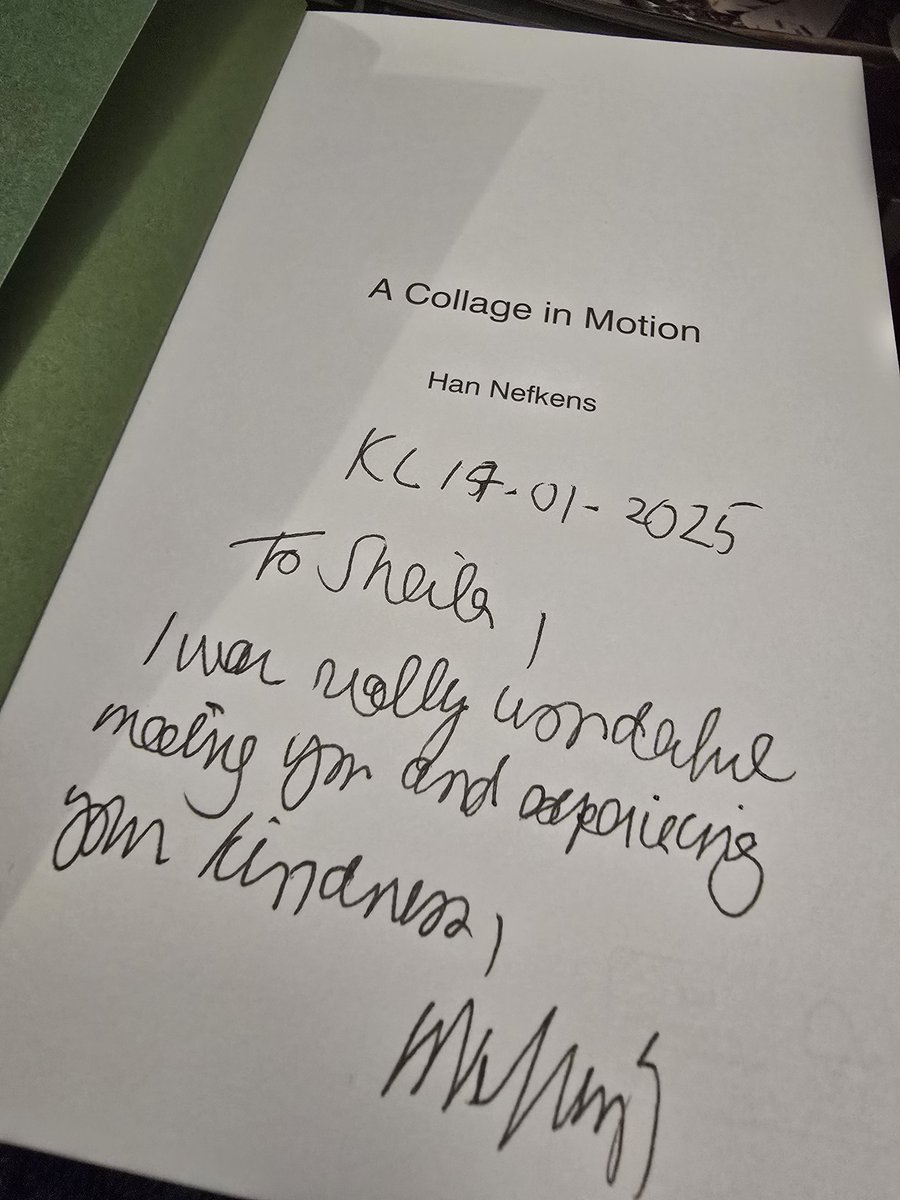 A Collage in Motion
Han Nefkens
KL 19-01-2025
To Sheila,
I was really wonderful
meeting you and experiecing
your kindness,